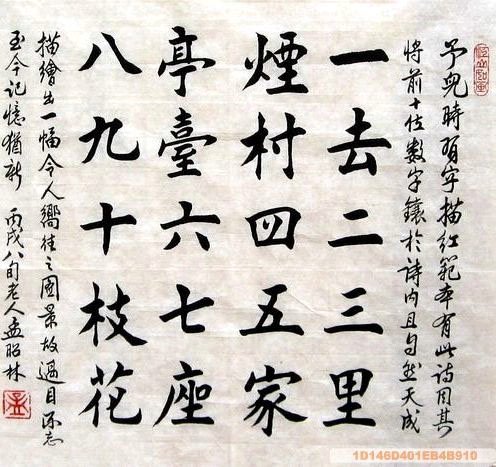 予兒時習字描红範本有此詩因其
将前十位数字鑲於诗内且自然天成
一去二三里
煙村四五家
亭臺六七座
八九十枝花
描繪出一幅令人嚮往之圖景故過目不忘
至今记憶猶新 丙戌八旬老人孟昭林
1D146D401EB4B910